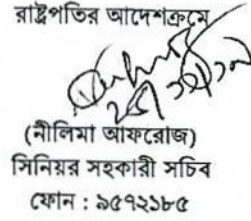 রাষ্ট্রপতির আদেশক্রমে
(নীলিমা আফরোজ)
সিনিয়র সহকারী সচিব
ফোন : ৯৫৭২১৮৫